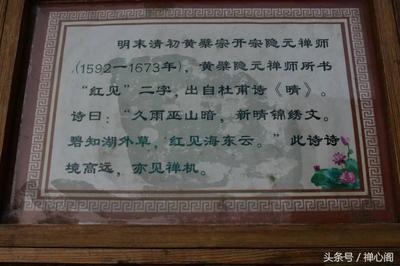 明末清初黄檗宗开宗隐元禅师
(1592—1673年)，黄檗隐元禅师所书
“红见”二字，出自杜甫诗《晴》。
诗曰：“久雨巫山暗，新晴锦绣文。
碧知湖外草，红见海东云。”此诗诗
境高远，亦见禅机。
头条号 / 禅心阁